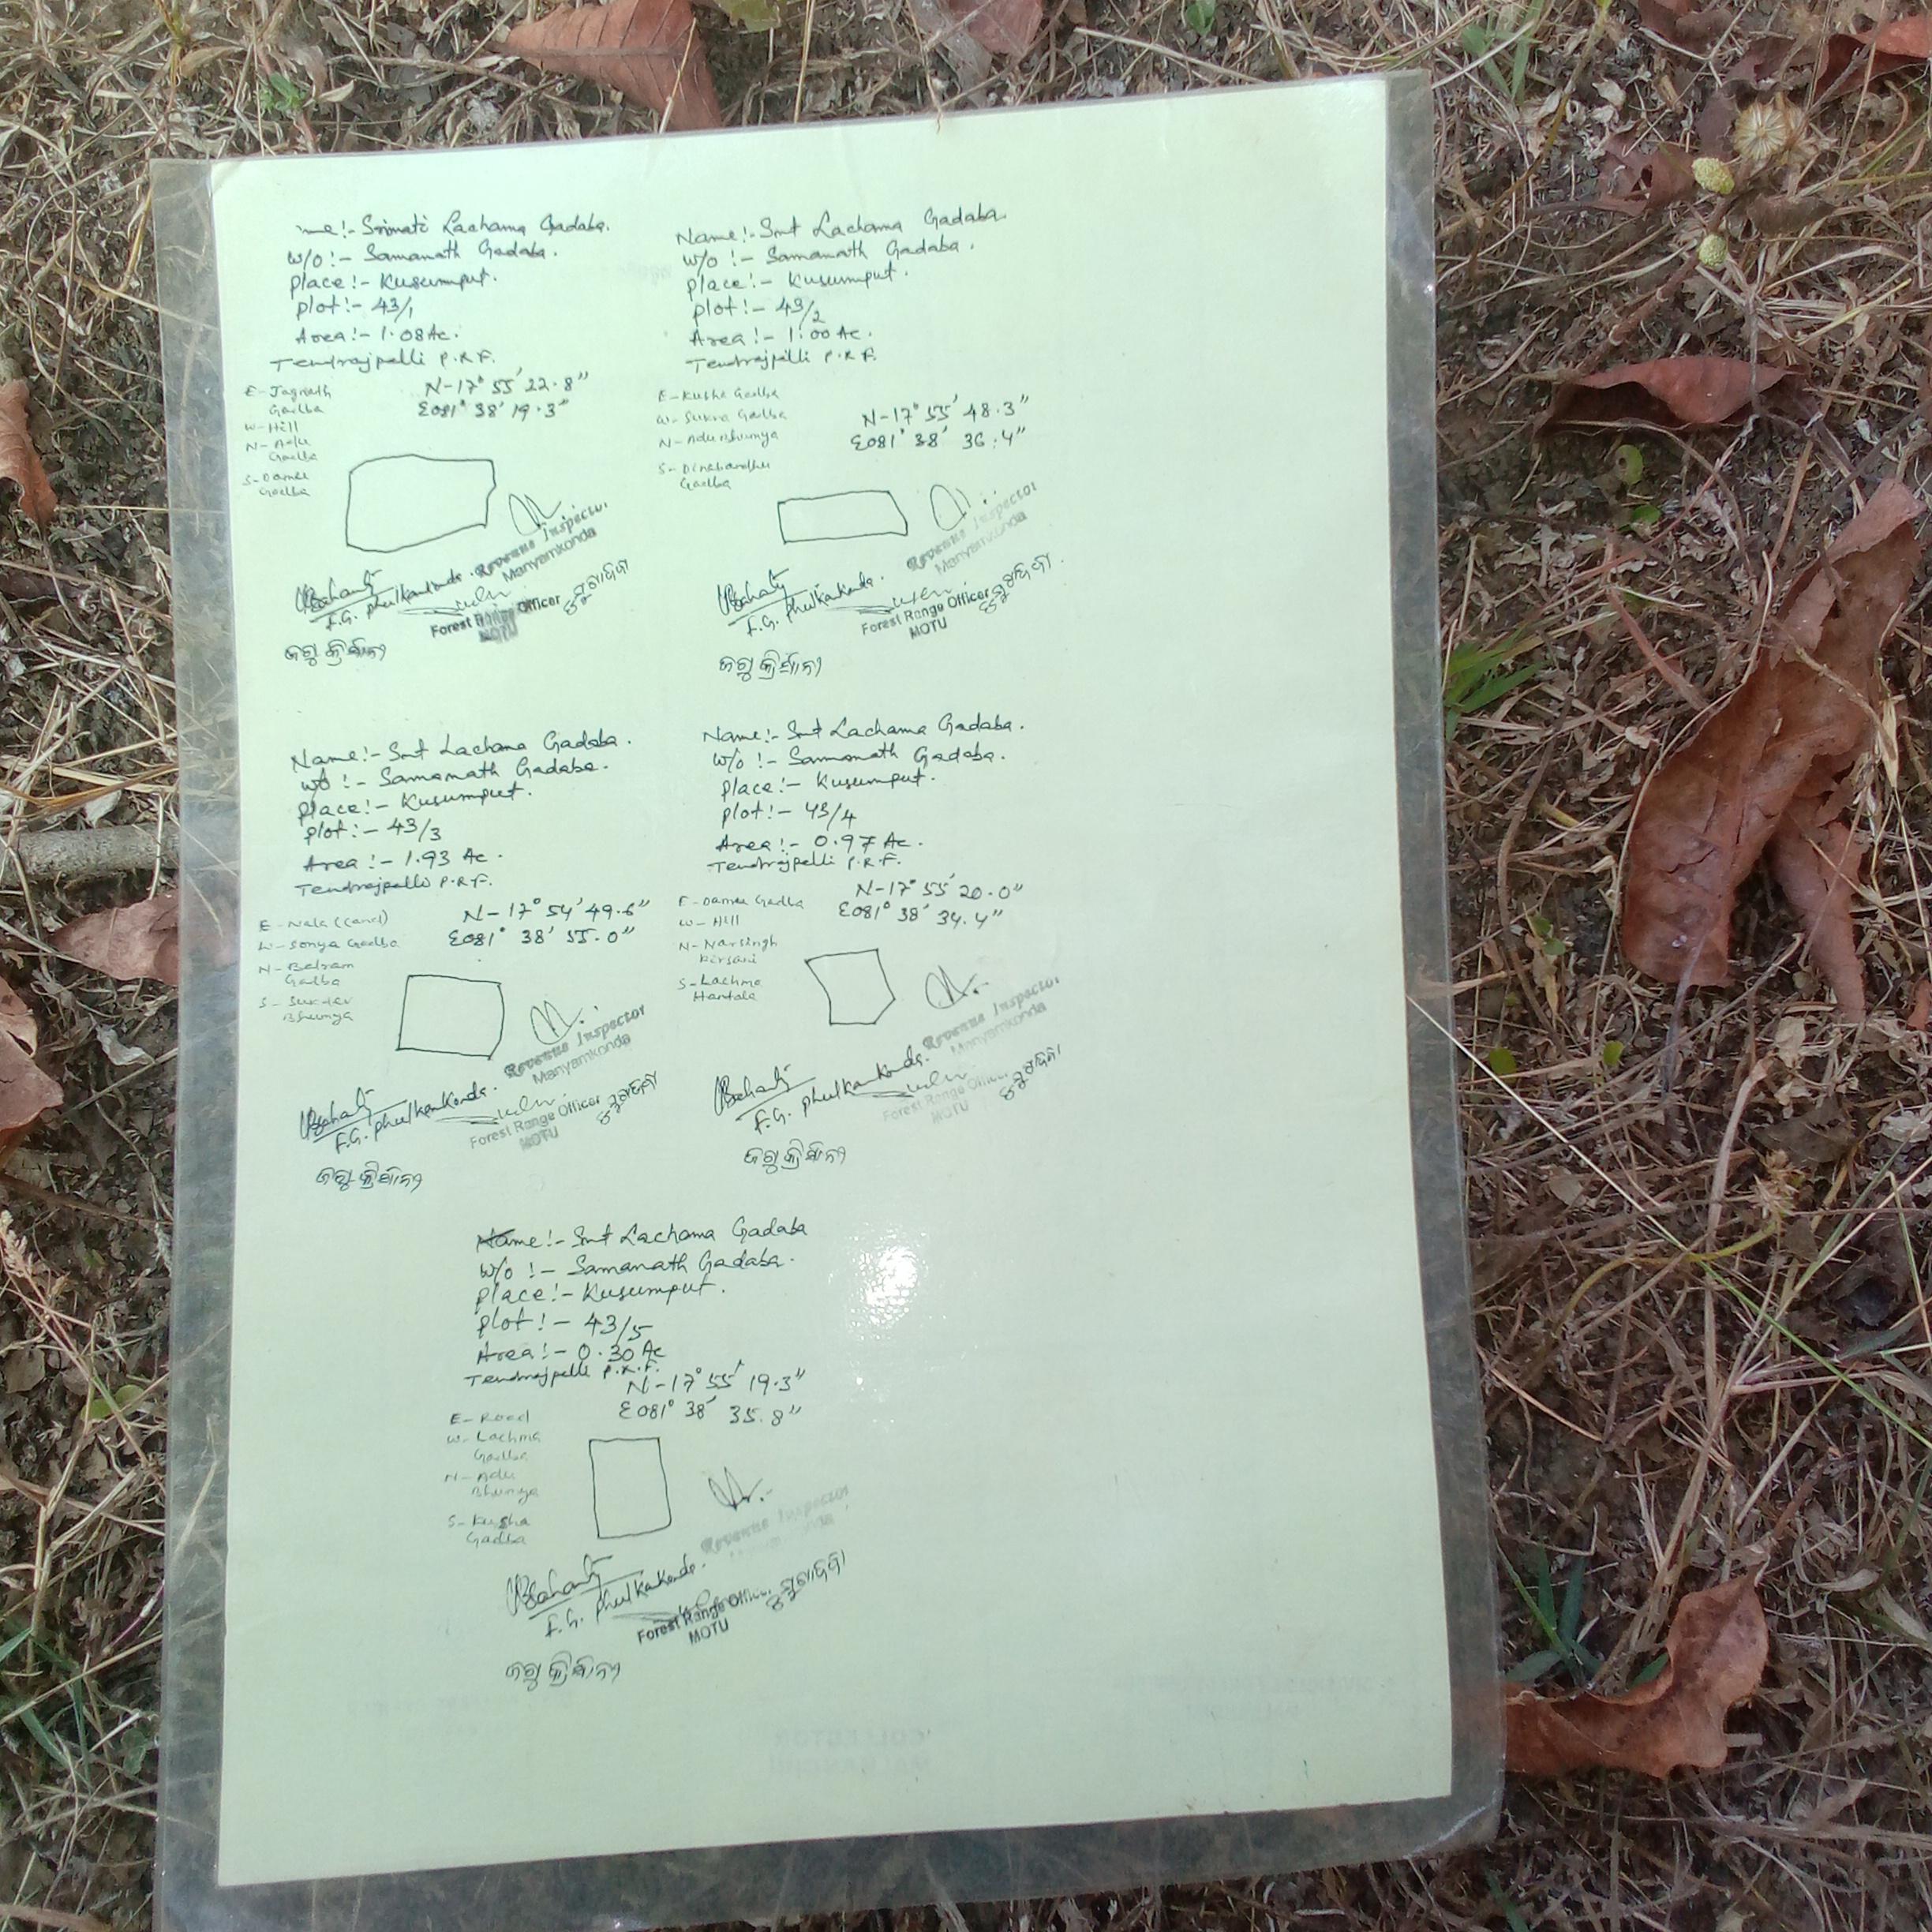 me:- Srimati Lachama Gadaba.
w/o :- Samanath Gadaba.
place:- Kusumput.
plot:- 43/1
Area:- 1.08 Ac.
Tendrajpalli P.R.F.
E- Jagnath
Gadba
W- Hill
N- Adu
Gadba
S- Damei
Gadba
N-17° 55' 22.8"
E081° 38' 19.3"
Revenue Inspector
Manyamkonda
F.G. Phulkankonda.
Forest Range Officer
MOTU
Name:- Smt Lachama Gadaba.
w/o :- Samanath Gadaba.
place:- Kusumput.
plot:- 43/2
Area:- 1.00 Ac.
Tendrajpalli P.R.F.
E- Kusha Gadba
W- Sukra Gadba
N- Adu Bhumya
S- Dinabandhu
Gadba
N-17° 55' 48.3"
E081° 38' 36.4"
Revenue Inspector
Manyamkonda
F.G. Phulkankonda.
Forest Range Officer
MOTU
Name:- Smt Lachama Gadaba.
w/o :- Samanath Gadaba.
place:- Kusumput.
plot:- 43/3
Area:- 1.93 Ac.
Tendrajpalli P.R.F.
E- Nala (Canel)
W- Sonya Gadba
N- Balram
Gadba
S-
Bhumya
N-17° 54' 49.6"
E081° 38' 55.0"
Revenue Inspector
Manyamkonda
F.G. Phulkankonda.
Forest Range Officer
MOTU
Name:- Smt Lachama Gadaba.
w/o :- Samanath Gadaba.
place:- Kusumput.
plot:- 43/4
Area:- 0.97 Ac.
Tendrajpelli P.R.F.
E- Damei Gadba
W- Hill
N- Narsingh
Kirsani
S- Lachma
Hantala
N-17° 55' 20.0"
E081° 38' 34.4"
Revenue Inspector
Manyamkonda
F.G. Phulkankonda.
Forest Range Officer
MOTU
Name:- Smt Lachama Gadaba
w/o :- Samanath Gadaba.
place:- Kusumput.
plot:- 43/5
Area:- 0.30 Ac
Tendrajpelli P.R.F.
N-17° 55' 19.3"
E081° 38' 35.8"
E- Road
W- Lachma
Gadba
N- Adu
Bhumya
S- Kusha
Gadba
Revenue Inspector
F.G. Phulkankonda.
Forest Range Officer
MOTU